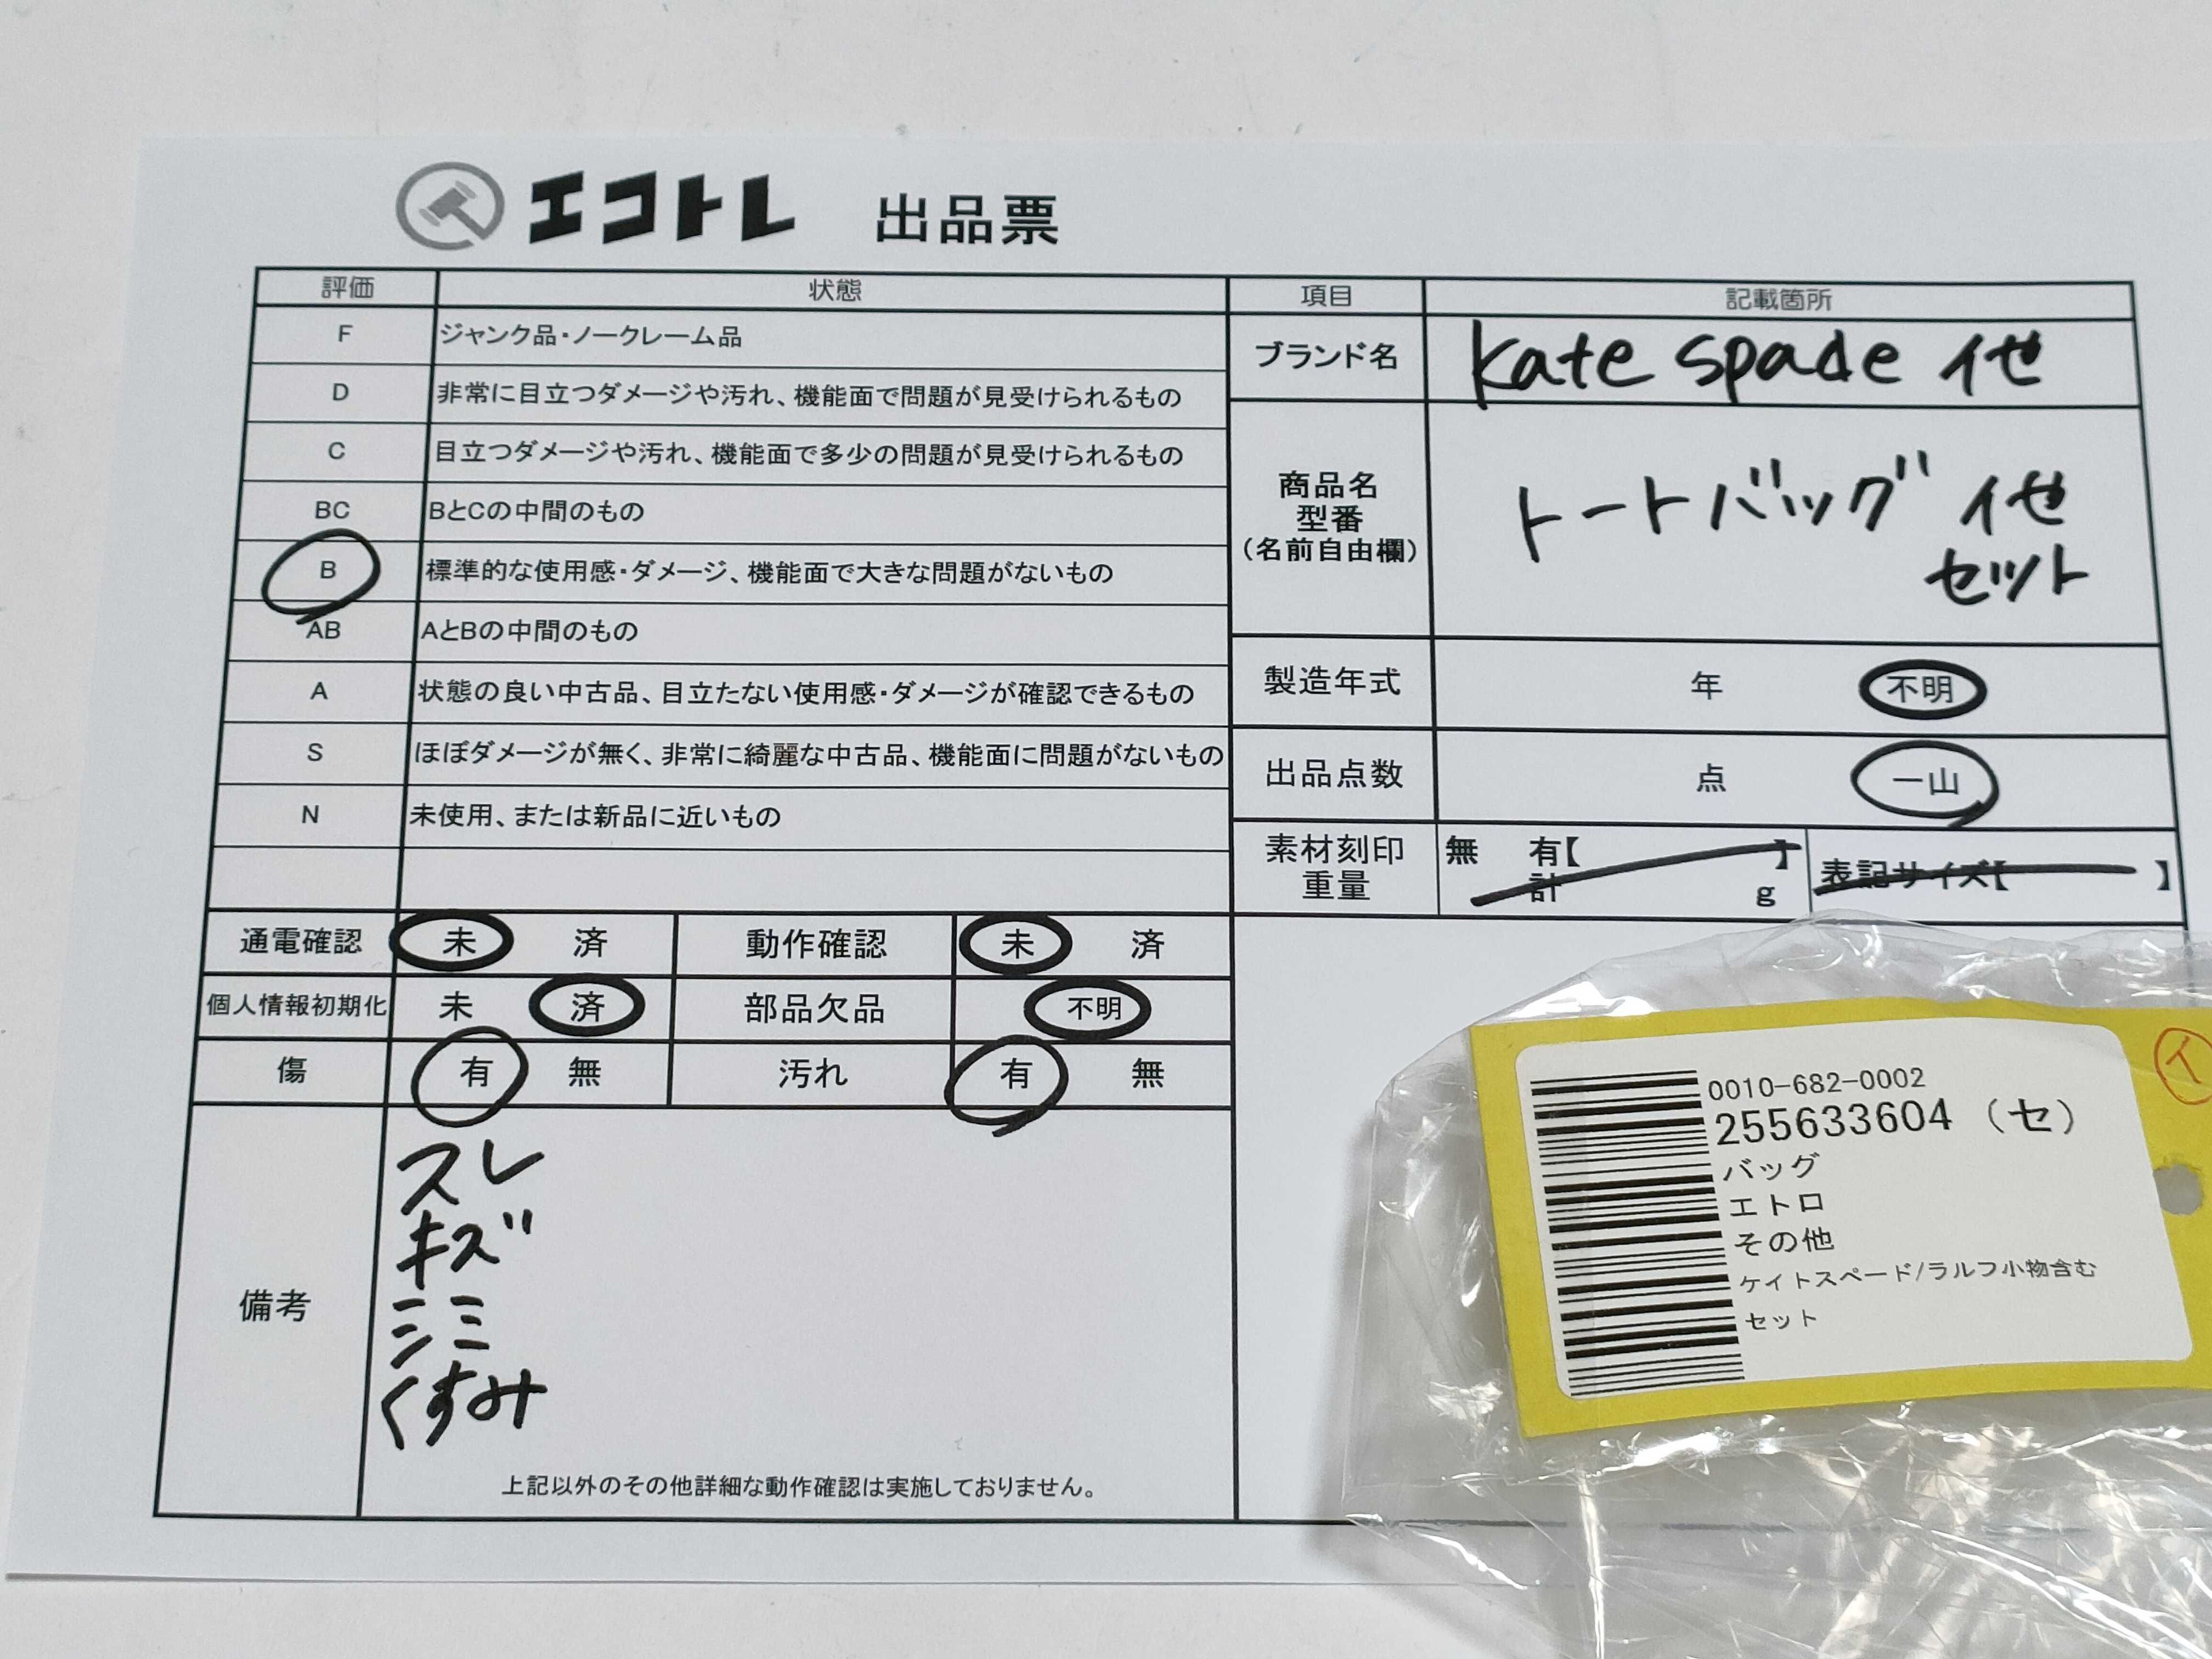 エコトレ 出品票
評価 状態
F ジャンク品・ノークレーム品
D 非常に目立つダメージや汚れ、機能面で問題が見受けられるもの
C 目立つダメージや汚れ、機能面で多少の問題が見受けられるもの
BC BとCの中間のもの
B 標準的な使用感・ダメージ、機能面で大きな問題がないもの
AB AとBの中間のもの
A 状態の良い中古品、目立たない使用感・ダメージが確認できるもの
S ほぼダメージが無く、非常に綺麗な中古品、機能面に問題がないもの
N 未使用、または新品に近いもの
項目 記載箇所
ブランド名 kate spade 他
商品名
型番
(名前自由欄)
トートバッグ 他
セット
製造年式 年 不明
出品点数 点 一山
素材刻印
重量
無 有【 】
計 g
表記サイズ【 】
通電確認 未 済 動作確認 未 済
個人情報初期化 未 済 部品欠品 不明
傷 有 無 汚れ 有 無
備考
スレ
キズ
シミ
くすみ
上記以外のその他詳細な動作確認は実施しておりません。
0010-682-0002
255633604 (セ)
バッグ
エトロ
その他
ケイトスペード/ラルフ小物含む
セット
イ